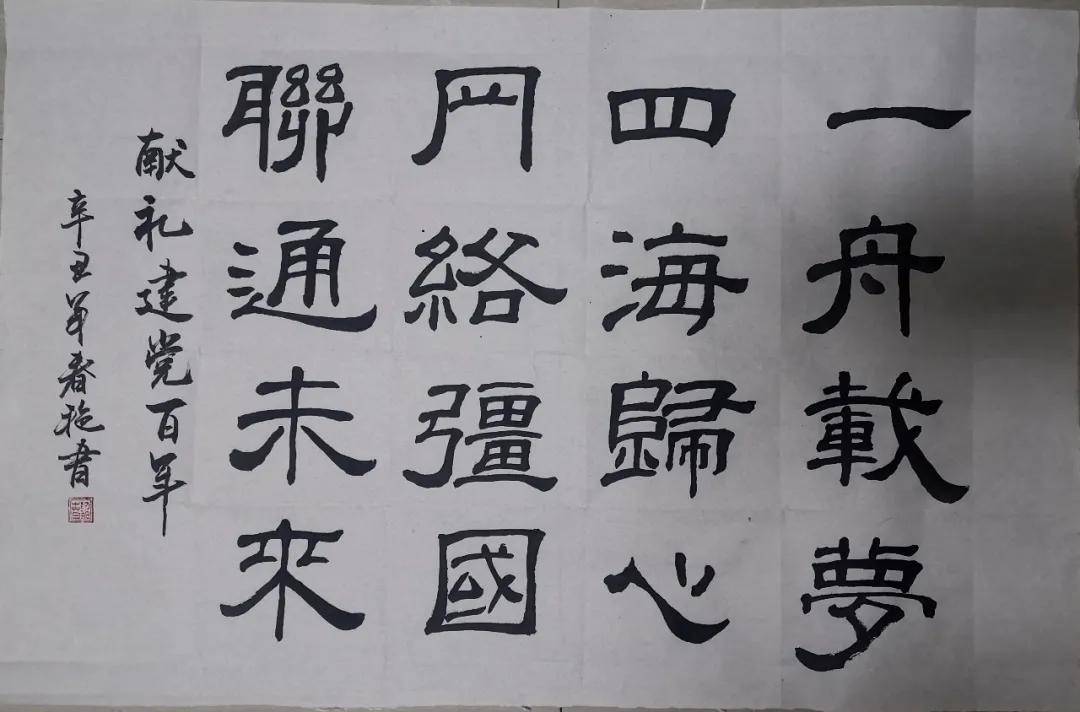 一舟載夢
四海歸心
网絡彊國
聯通未來
献礼建党百年
辛丑年春書